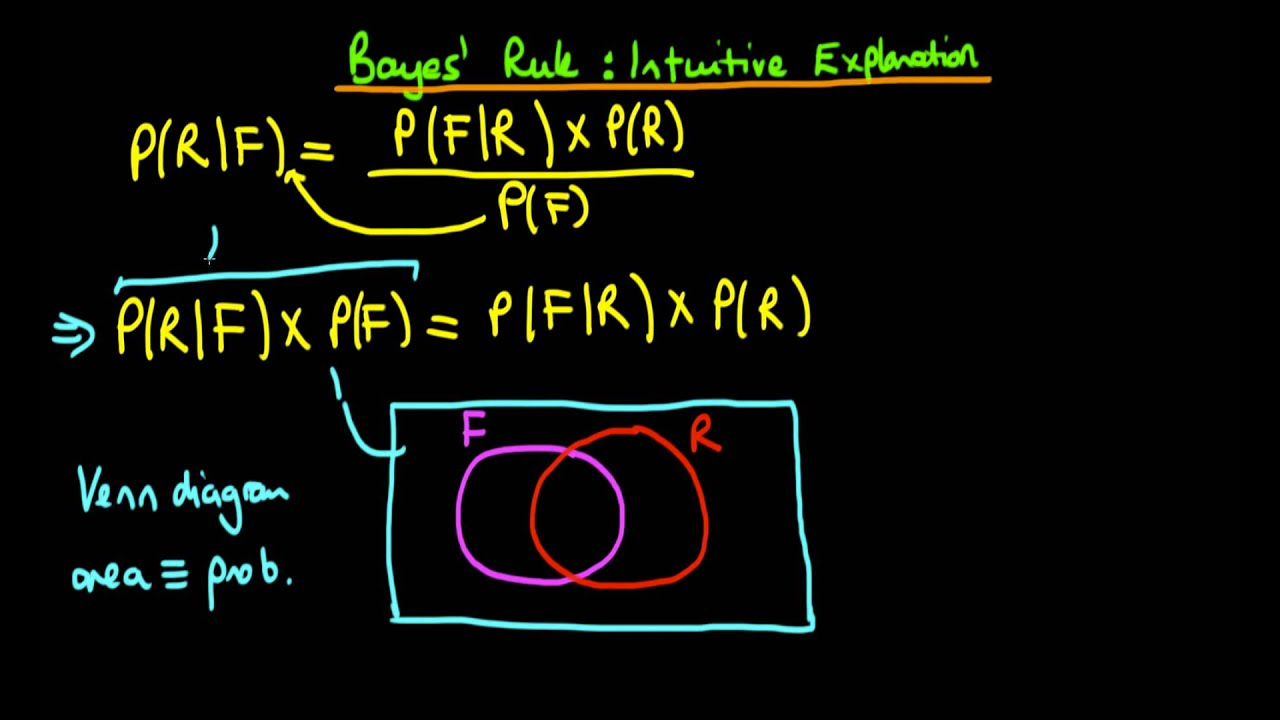 Bayes' Rule : Intuitive Explanation
P(R|F) = P(F|R) x P(R)
P(F)
⇒ P(R|F) x P(F) = P(F|R) x P(R)
F
R
Venn diagram
area ≡ prob.